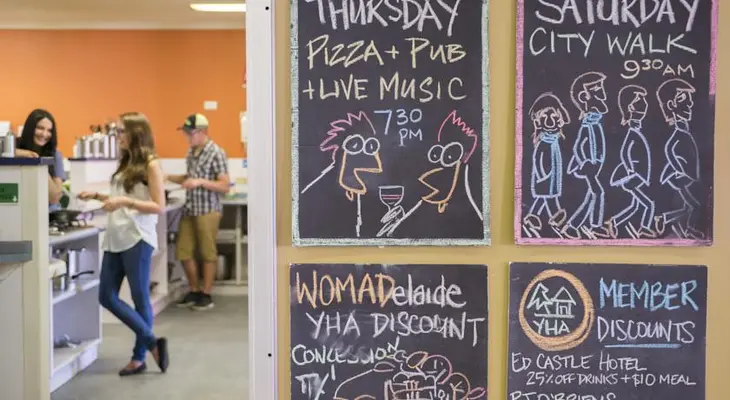 THURSDAY
PIZZA + PUB
+ LIVE MUSIC
7 30
PM
SATURDAY
CITY WALK
9 30 AM
WOMADelaide
YHA DISCOUNT
CONCESSION
YHA
MEMBER
DISCOUNTS
ED CASTLE HOTEL
25% OFF DRINKS + $10 MEAL